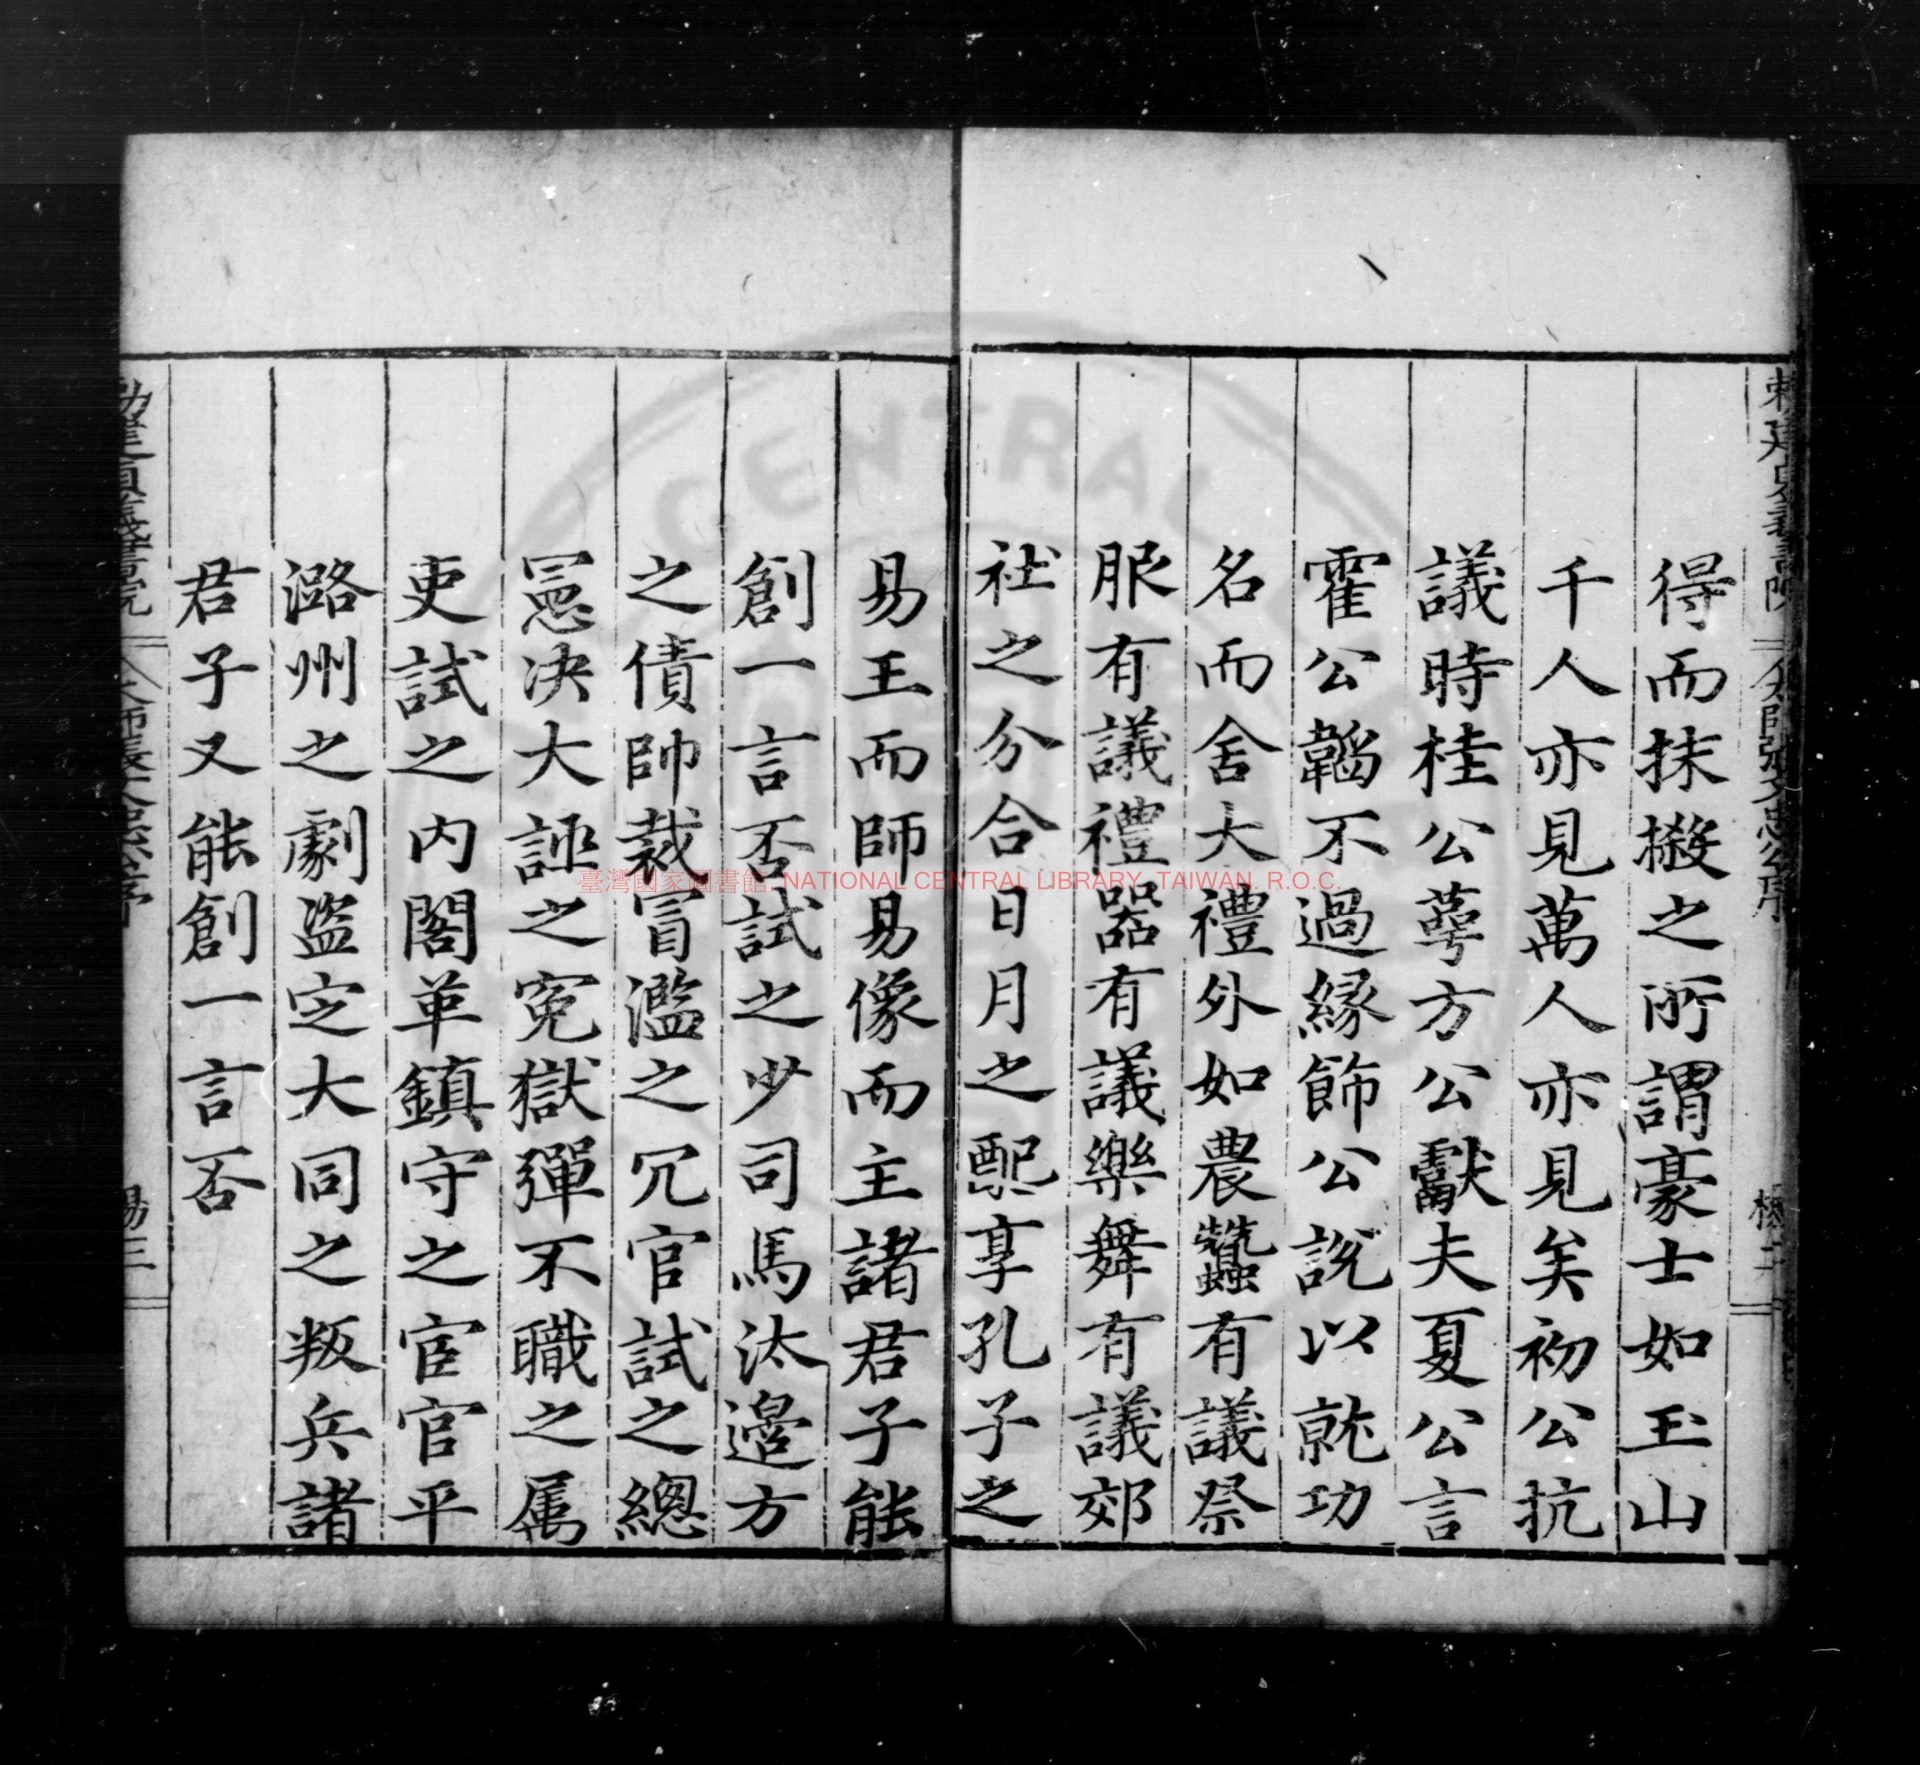 得而抹摋之所謂豪士如玉山
千人亦見萬人亦見矣初公抗
議時桂公蕚方公獻夫夏公言
霍公韜不過緣飾公說以就功
名而舍大禮外如農蠶有議祭
服有議禮器有議樂舞有議郊
社之分合日月之配享孔子之
易王而師易像而主諸君子能
創一言否試之少司馬汰邉方
之債帥裁冒濫之冗官試之總
憲决大誣之寃獄彈不職之属
吏試之內閣革鎮守之宦官平
潞州之劇盗定大同之叛兵諸
君子又能創一言否
臺灣國家圖書館 NATIONAL CENTRAL LIBRARY, TAIWAN. R.O.C.
CENTRAL